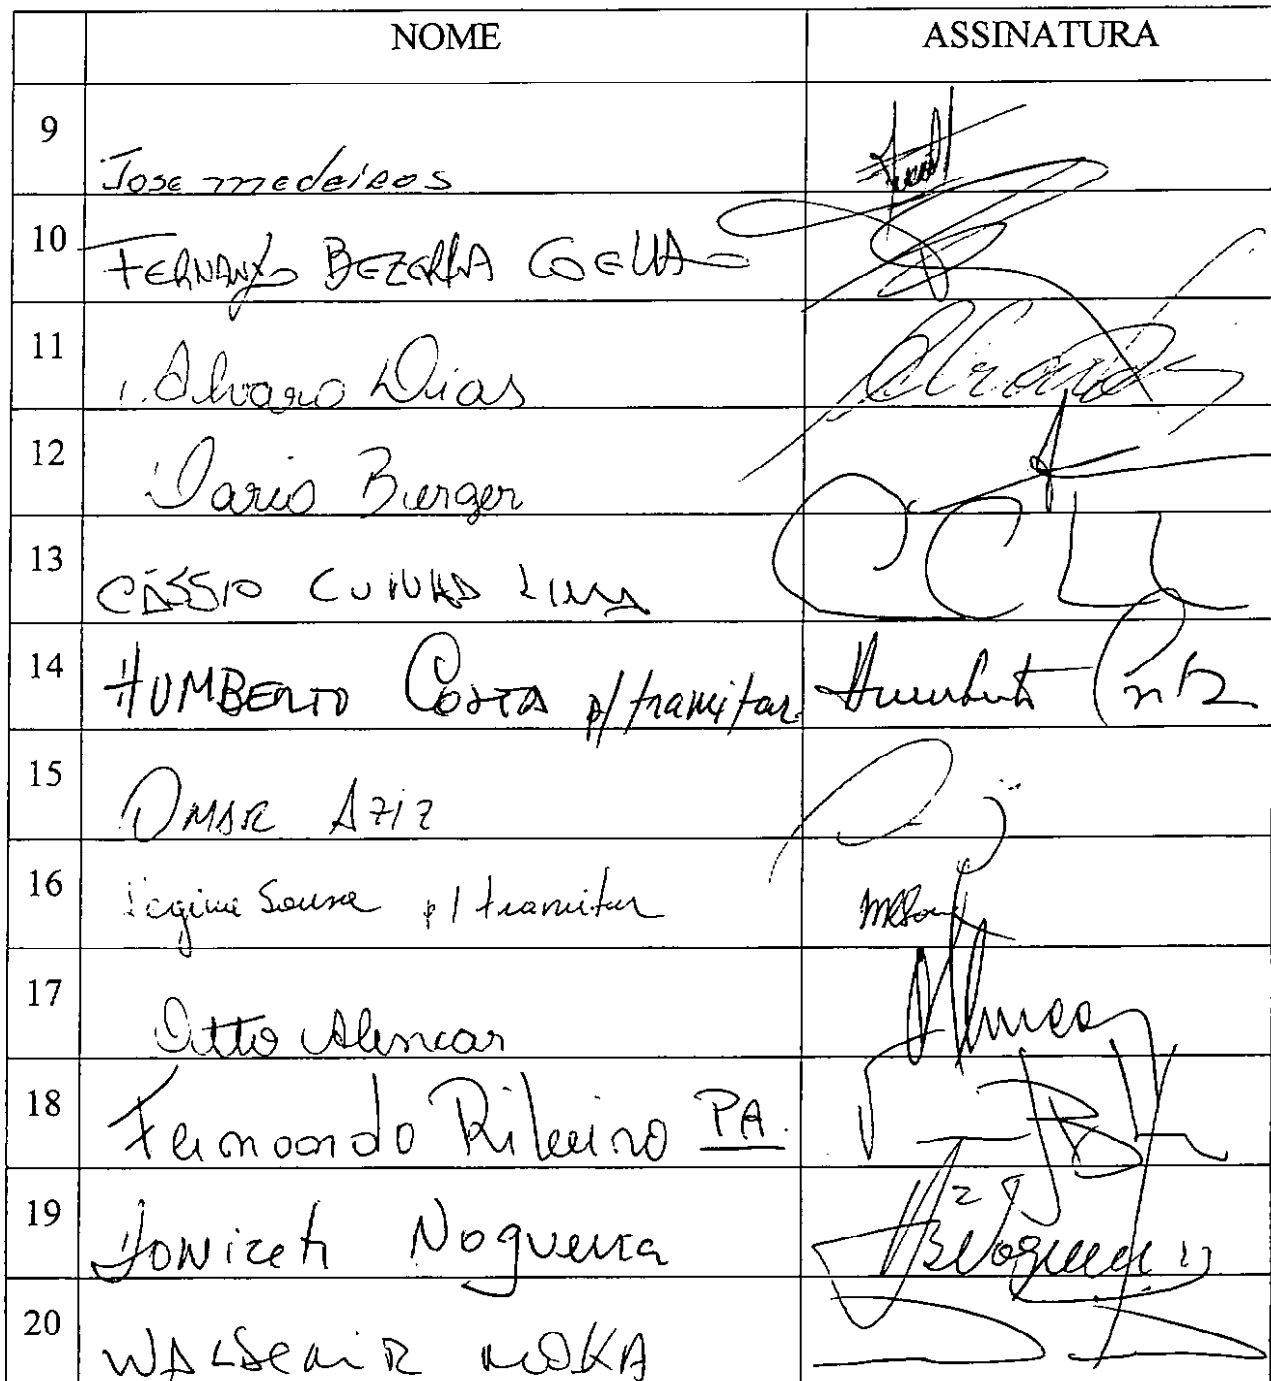 NOME ASSINATURA
9 Jose medeiros
10 FERNANDO BEZERRA COELHO
11 Alvaro Dias
12 Dario Berger
13 CÁSSIO CUNHA LIMA CCLL
14 HUMBERTO COSTA p/ tramitar Humberto Costa
15 OMAR AZIZ
16 Regina Sousa p/ tramitar
17 Otto Alencar
18 Fernando Ribeiro PA.
19 Donizeti Nogueira
20 WALDEMIR MOKA